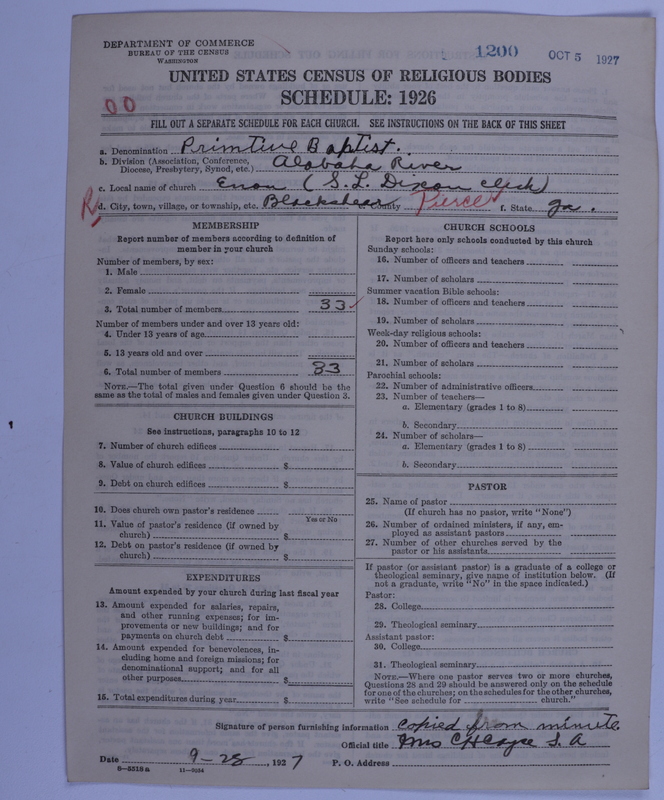 DEPARTMENT OF COMMERCE
BUREAU OF THE CENSUS
WASHINGTON
1200 OCT 5 1927
UNITED STATES CENSUS OF RELIGIOUS BODIES
SCHEDULE: 1926
00
FILL OUT A SEPARATE SCHEDULE FOR EACH CHURCH. SEE INSTRUCTIONS ON THE BACK OF THIS SHEET
a. Denomination Primtive Baptist.
b. Division (Association, Conference, Diocese, Presbytery, Synod, etc.) Alabaha River
c. Local name of church Enon (S. L. Dixon clerk)
R d. City, town, village, or township, etc. Blackshear e. County Pierce f. State Ga.
MEMBERSHIP
Report number of members according to definition of
member in your church
Number of members, by sex:
1. Male
2. Female
3. Total number of members 33
Number of members under and over 13 years old:
4. Under 13 years of age
5. 13 years old and over
6. Total number of members 33
NOTE.—The total given under Question 6 should be the
same as the total of males and females given under Question 3.
CHURCH BUILDINGS
See instructions, paragraphs 10 to 12
7. Number of church edifices
8. Value of church edifices $
9. Debt on church edifices $
10. Does church own pastor's residence
Yes or No
11. Value of pastor's residence (if owned by
church) $
12. Debt on pastor's residence (if owned by
church) $
EXPENDITURES
Amount expended by your church during last fiscal year
13. Amount expended for salaries, repairs,
and other running expenses; for im-
provements or new buildings; and for
payments on church debt $
14. Amount expended for benevolences, in-
cluding home and foreign missions; for
denominational support; and for all
other purposes $
15. Total expenditures during year $
CHURCH SCHOOLS
Report here only schools conducted by this church
Sunday schools:
16. Number of officers and teachers
17. Number of scholars
Summer vacation Bible schools:
18. Number of officers and teachers
19. Number of scholars
Week-day religious schools:
20. Number of officers and teachers
21. Number of scholars
Parochial schools:
22. Number of administrative officers
23. Number of teachers—
a. Elementary (grades 1 to 8)
b. Secondary
24. Number of scholars—
a. Elementary (grades 1 to 8)
b. Secondary
PASTOR
25. Name of pastor
(If church has no pastor, write "None")
26. Number of ordained ministers, if any, em-
ployed as assistant pastors
27. Number of other churches served by the
pastor or his assistants
If pastor (or assistant pastor) is a graduate of a college or
theological seminary, give name of institution below. (If
not a graduate, write "No" in the space indicated.)
Pastor:
28. College
29. Theological seminary
Assistant pastor:
30. College
31. Theological seminary
NOTE.—Where one pastor serves two or more churches,
Questions 28 and 29 should be answered only on the schedule
for one of the churches; on the schedules for the other churches,
write "See schedule for church."
Signature of person furnishing information copied from minute.
Official title Mrs C H Cayce S. A
Date 9-28, 1927 P. O. Address
6-5318a 11-9034
1